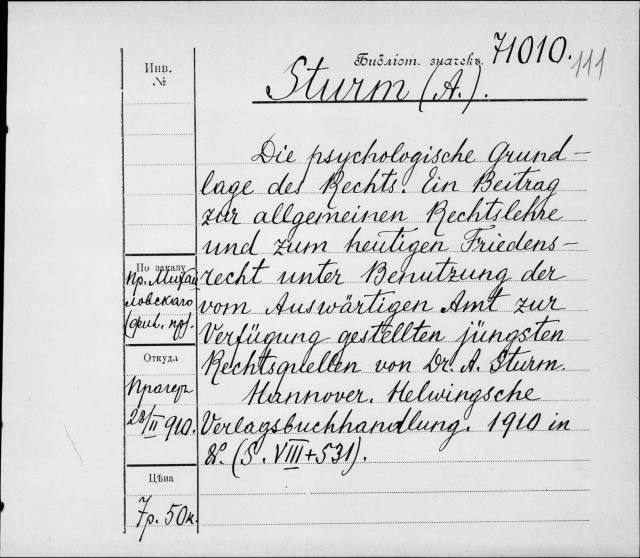 Библіот. значекъ 71010. 111
Инв.
№
Sturm (A.).
Die psychologische Grund-
lage des Rechts. Ein Beitrag
zur allgemeinen Rechtslehre
und zum heutigen Friedens-
recht unter Benutzung der
vom Auswärtigen Amt zur
Verfügung gestellten jüngsten
Rechtsquellen von Dr. A. Sturm.
Hannover. Helwingsche
Verlagsbuchhandlung. 1910 in
8º. (S. VIII+531).
По заказу
Пр. Михай
ловскаго
Откуда
Прагеръ
28/II 910.
Цѣна
7р. 50к.